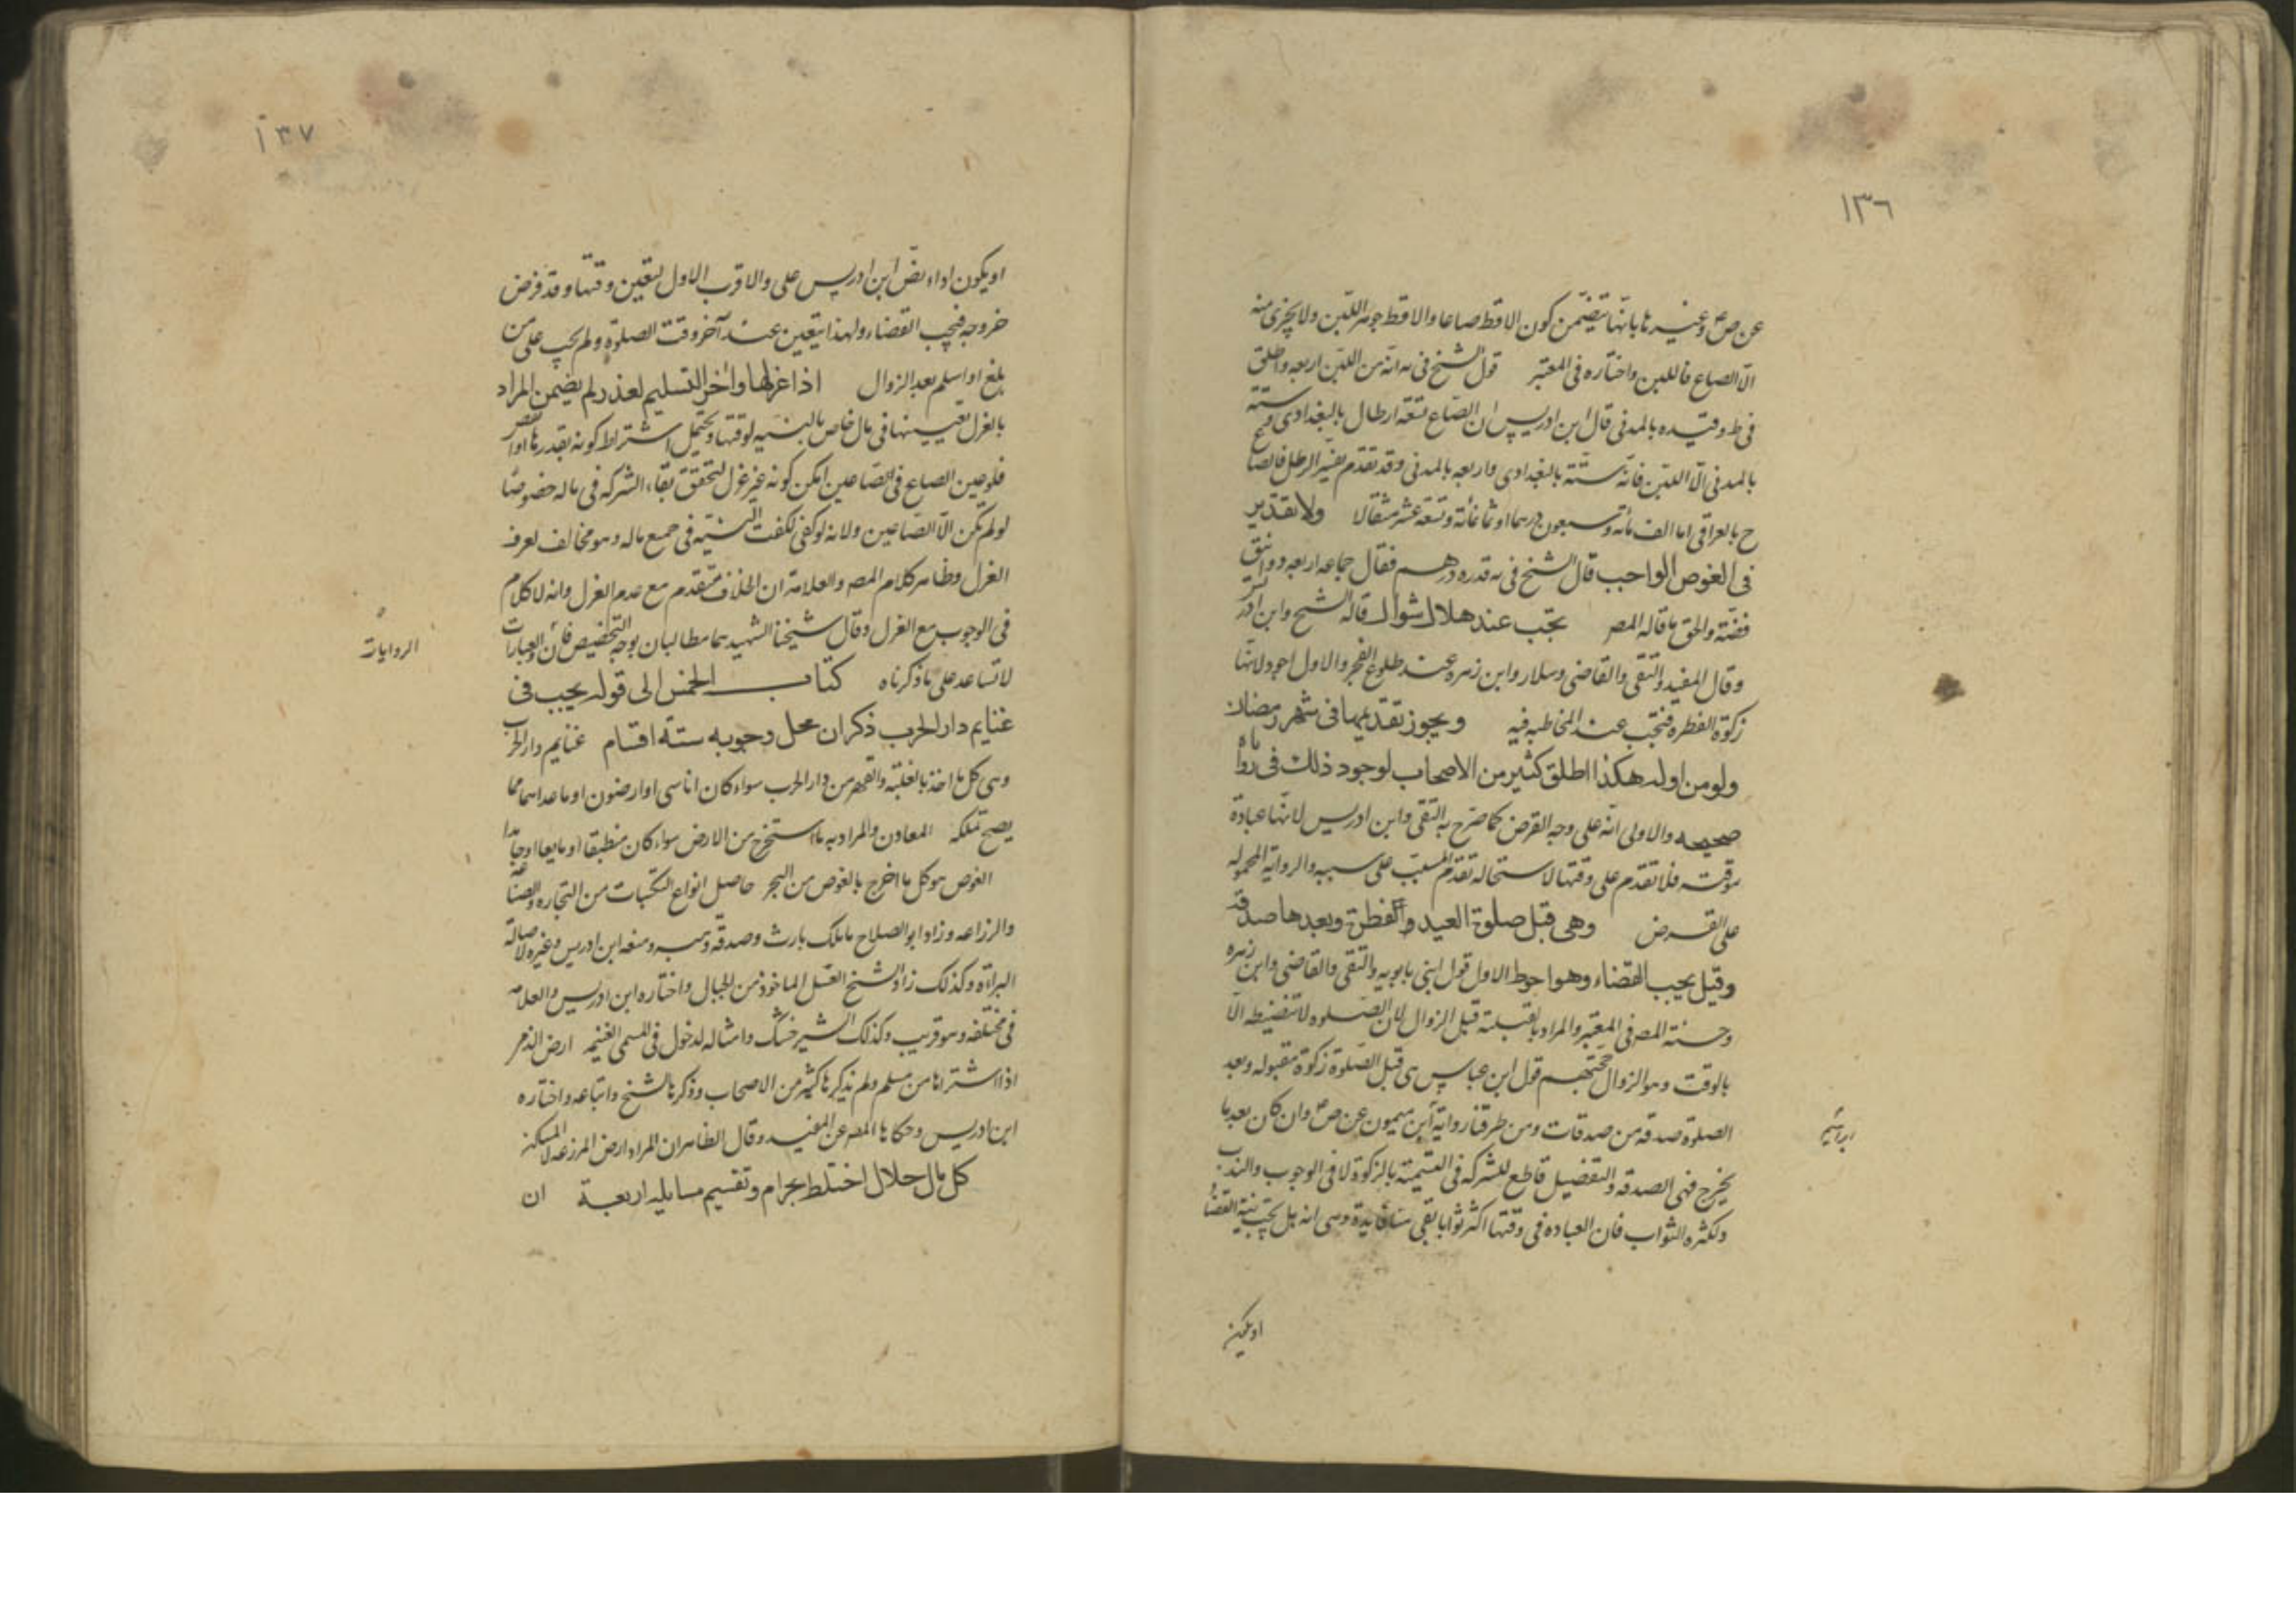 ١٣٦
عن ص وغيرها بانها تتضمن كون الاقط صاعا والاقط جوهر اللبن ولا يجزى منه
الا الصاع فاللبن واختاره فى المعتبر قول الشيخ فى يه انه من اللبن اربعه واطلق
فى ط وقيده بالمدنى قال ابن ادريس ان الصاع تسعة ارطال بالبغدادى وستة
بالمدنى الا اللبن فانه ستة بالبغدادى واربعه بالمدنى وقد تقدم تفسير الرطل فالصاع
ح بالعراقى اما الف مائه وسبعون درهما او ثمانمائة وتسعة عشر مثقالا ولا تقدير
فى العوض الواجب قال الشيخ فى يه قدره درهم فقال جماعه اربعه دوانيق
فضة والحق ما قاله المصر تجب عند هلال شوال قاله الشيخ وابن ادريس
وقال المفيد والتقى والقاضى وسلار وابن زهره عند طلوع الفجر والاول اجود لانها
زكوة الفطره فتجب عند المخاطبه فيه ويجوز تقديمها فى شهر رمضان
ولو من اوله هكذا اطلق كثير من الاصحاب لوجود ذلك فى رواية
صحيحه والاولى انه على وجه القرض كما صرح به التقى وابن ادريس لانها عبادة
موقته فلا تقدم على وقتها لاستحاله تقدم المسبب على سببه والرواية المحموله
على القرض وهى قبل صلوة العيد والفطرة وبعدها صدقة
وقيل يجب القضاء وهو احوط الاول قول ابنى بابويه والتقى والقاضى وابن زهره
وحسنه المصر فى المعتبر والمراد بالقبلية قبل الزوال لان الصلوه لا تنضبط الا
بالوقت وهو الزوال حجتهم قول ابن عباس هى قبل الصلوة زكوة مقبوله وبعد
الصلوة صدقه من صدقات ومن طرقنا رواية ابن ميمون عن ص وان كان بعد ما
ابراهيم
يخرج فهى الصدقه والتفضيل قاطع للشركه فى التسمية بالزكوة لا فى الوجوب والندب
ولكثره الثواب فان العباده فى وقتها اكثر ثوابا بقى هنا فايدة وهى انه هل يجب نية القضاء
او يكون
١٣٧
او يكون اداء نص ابن ادريس على والاقرب الاول لتعين وقتها وقد فرض
خروجه فيجب القضاء ولهذا يتعين عند آخر وقت الصلوة ولم يجب على من
بلغ او اسلم بعد الزوال اذا عزلها واخر التسليم لعذر لم يضمن المراد
بالعزل تعيينها فى مال خاص بالنية لوقتها ويحتمل اشتراط كونه بقدرها او
فلو عين الصاع فى الصاعين امكن كونه غير عزل لتحقق بقاء الشركه فى ماله خصوصا
لو لم يكن الا الصاعين ولانه لو كفى لكفت النيه فى جميع ماله وهو مخالف لعرف
العزل وظاهر كلام المصر والعلامة ان الخلاف متقدم مع عدم العزل وانه لا كلام
فى الوجوب مع العزل وقال شيخنا الشهيد هما مطالبان بوجه التخصيص فان والعبارات
الروايات
لا تساعد على ما ذكرناه كتاب الخمس الى قوله يجب فى
غنايم دار الحرب ذكر ان محل وجوبه ستة اقسام غنايم دار الحرب
وهى كل ما اخذ بالغلبة والقهر من دار الحرب سواء كان اناسى او ارضون او ما عداهما مما
يصح تملكه المعادن والمراد به ما استخرج من الارض سواء كان منطبقا او مايعا او جامدا
الغوص هو كل ما اخرج بالغوص من البحر حاصل انواع التكسبات من التجاره والصناعه
والزراعه وزاد ابو الصلاح ما ملك بارث وصدقه وهبه ومنعه ابن ادريس وغيره لاصالة
البراءة وكذلك زاد الشيخ العسل الماخوذ من الجبال واختاره ابن ادريس والعلامه
فى مختلفه وهو قريب وكذلك الشيرخشك وامثاله لدخول فى المسمى الغنيمه ارض الذمى
اذا اشتراها من مسلم ولم يذكرها كثير من الاصحاب وذكرها الشيخ واتباعه واختاره
ابن ادريس وحكاها المصر عن المفيد وقال الظاهر ان المراد ارض المزرعه لا المسكن
كل مال حلال اختلط بحرام وتقسيم مسايله اربعة ان